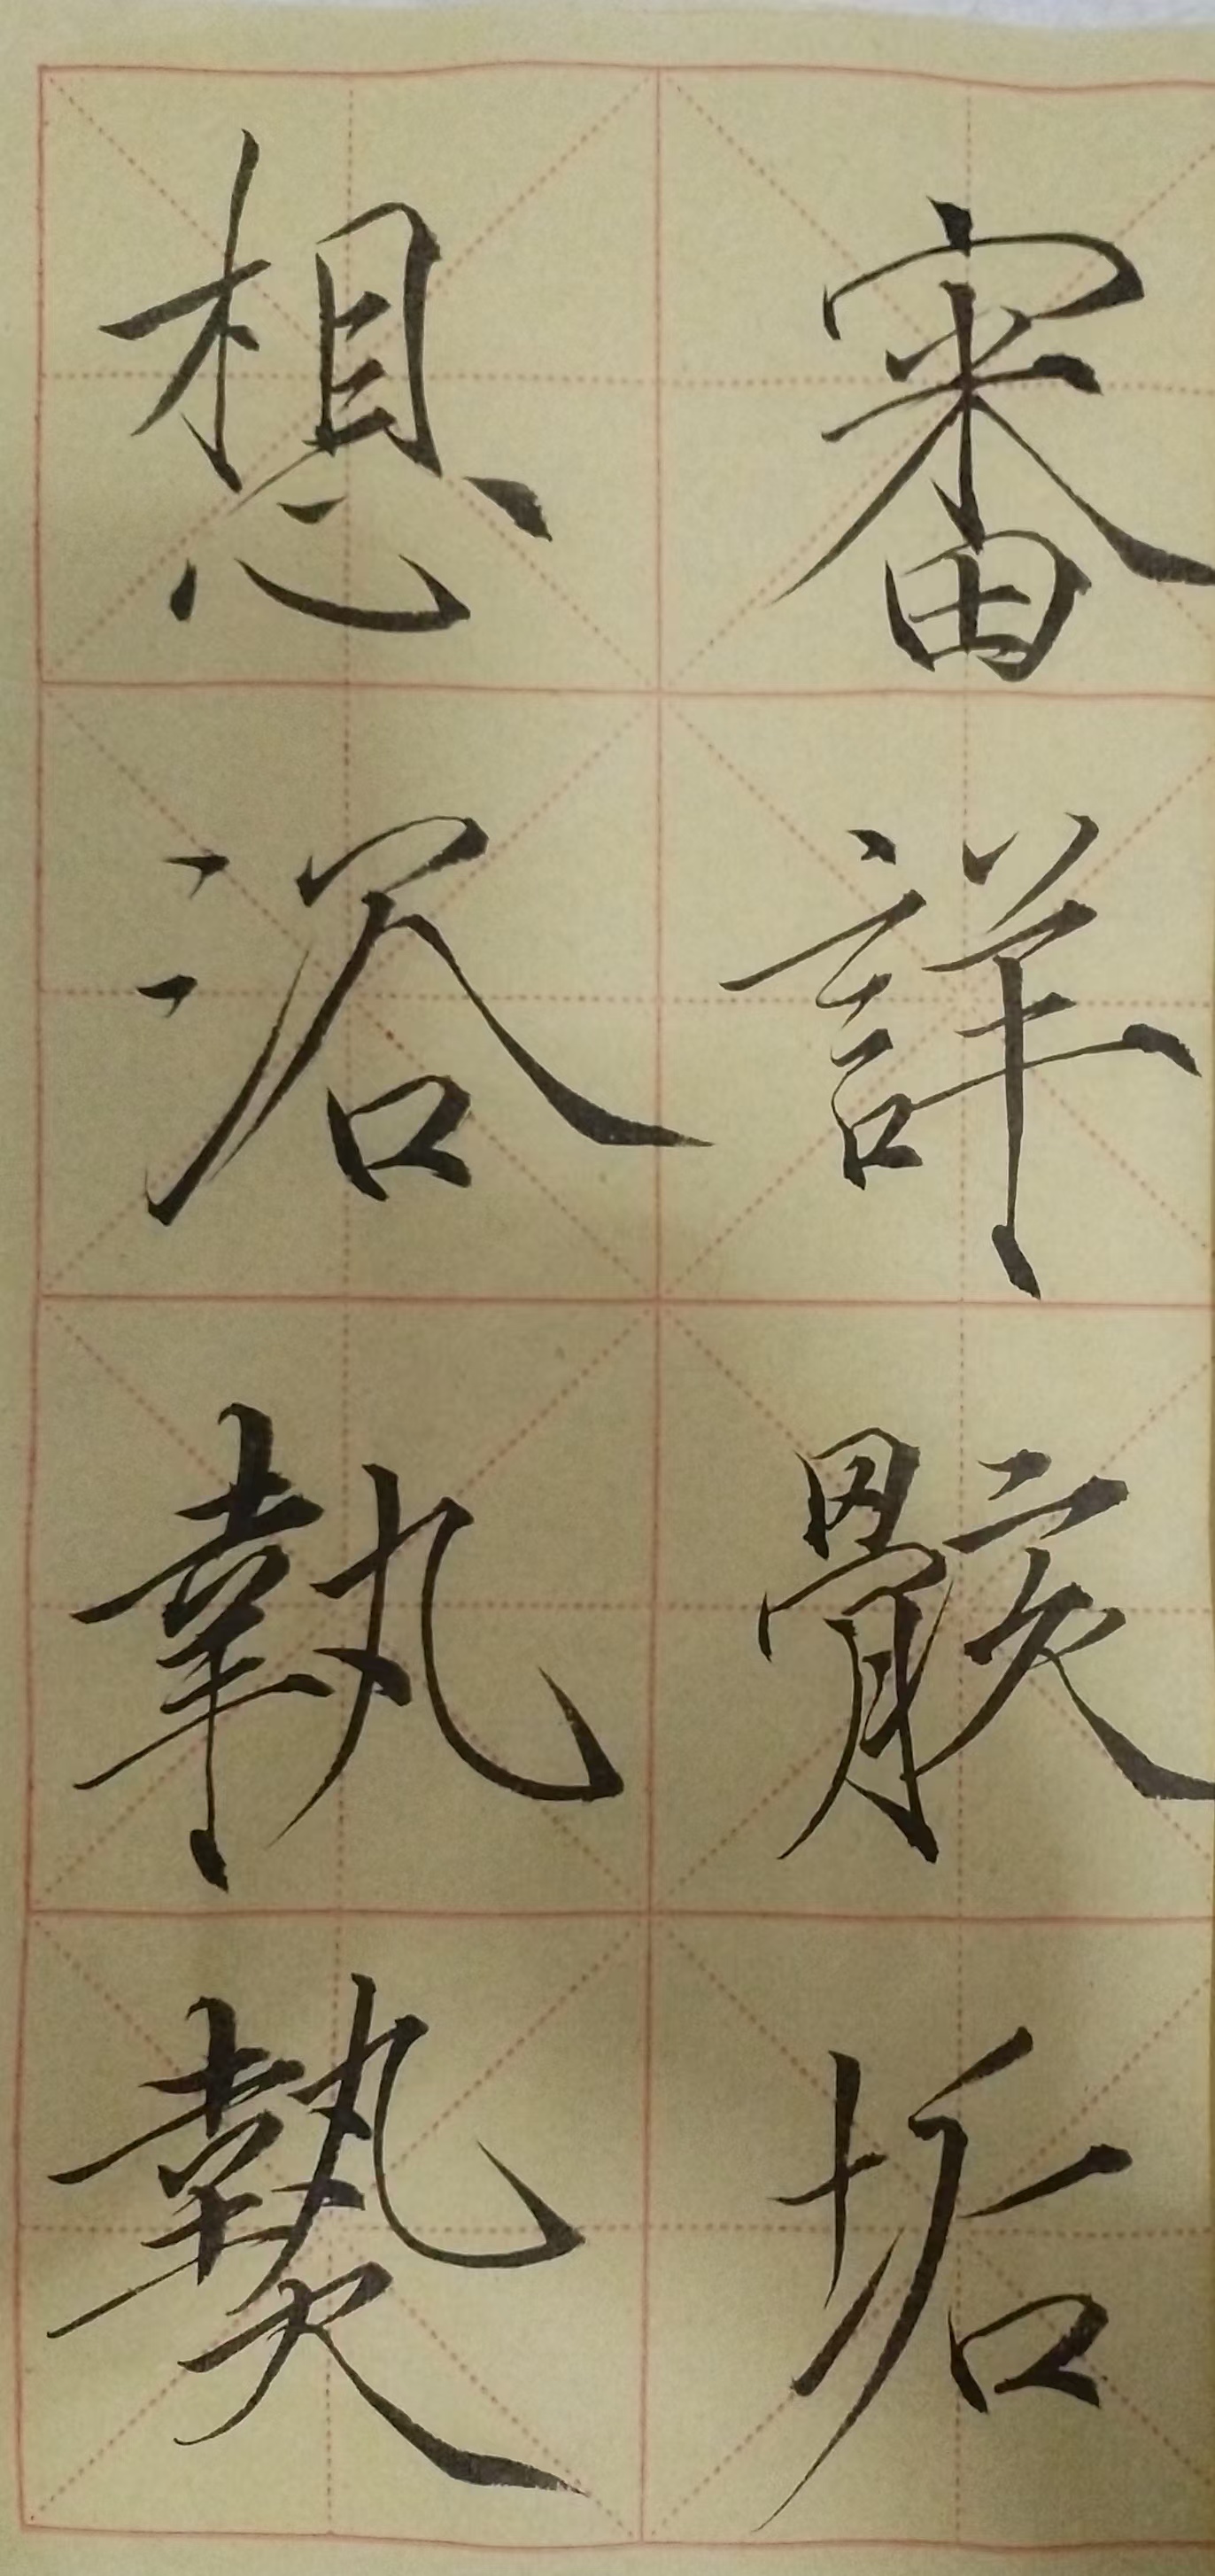 審詳骸垢
想浴執熱